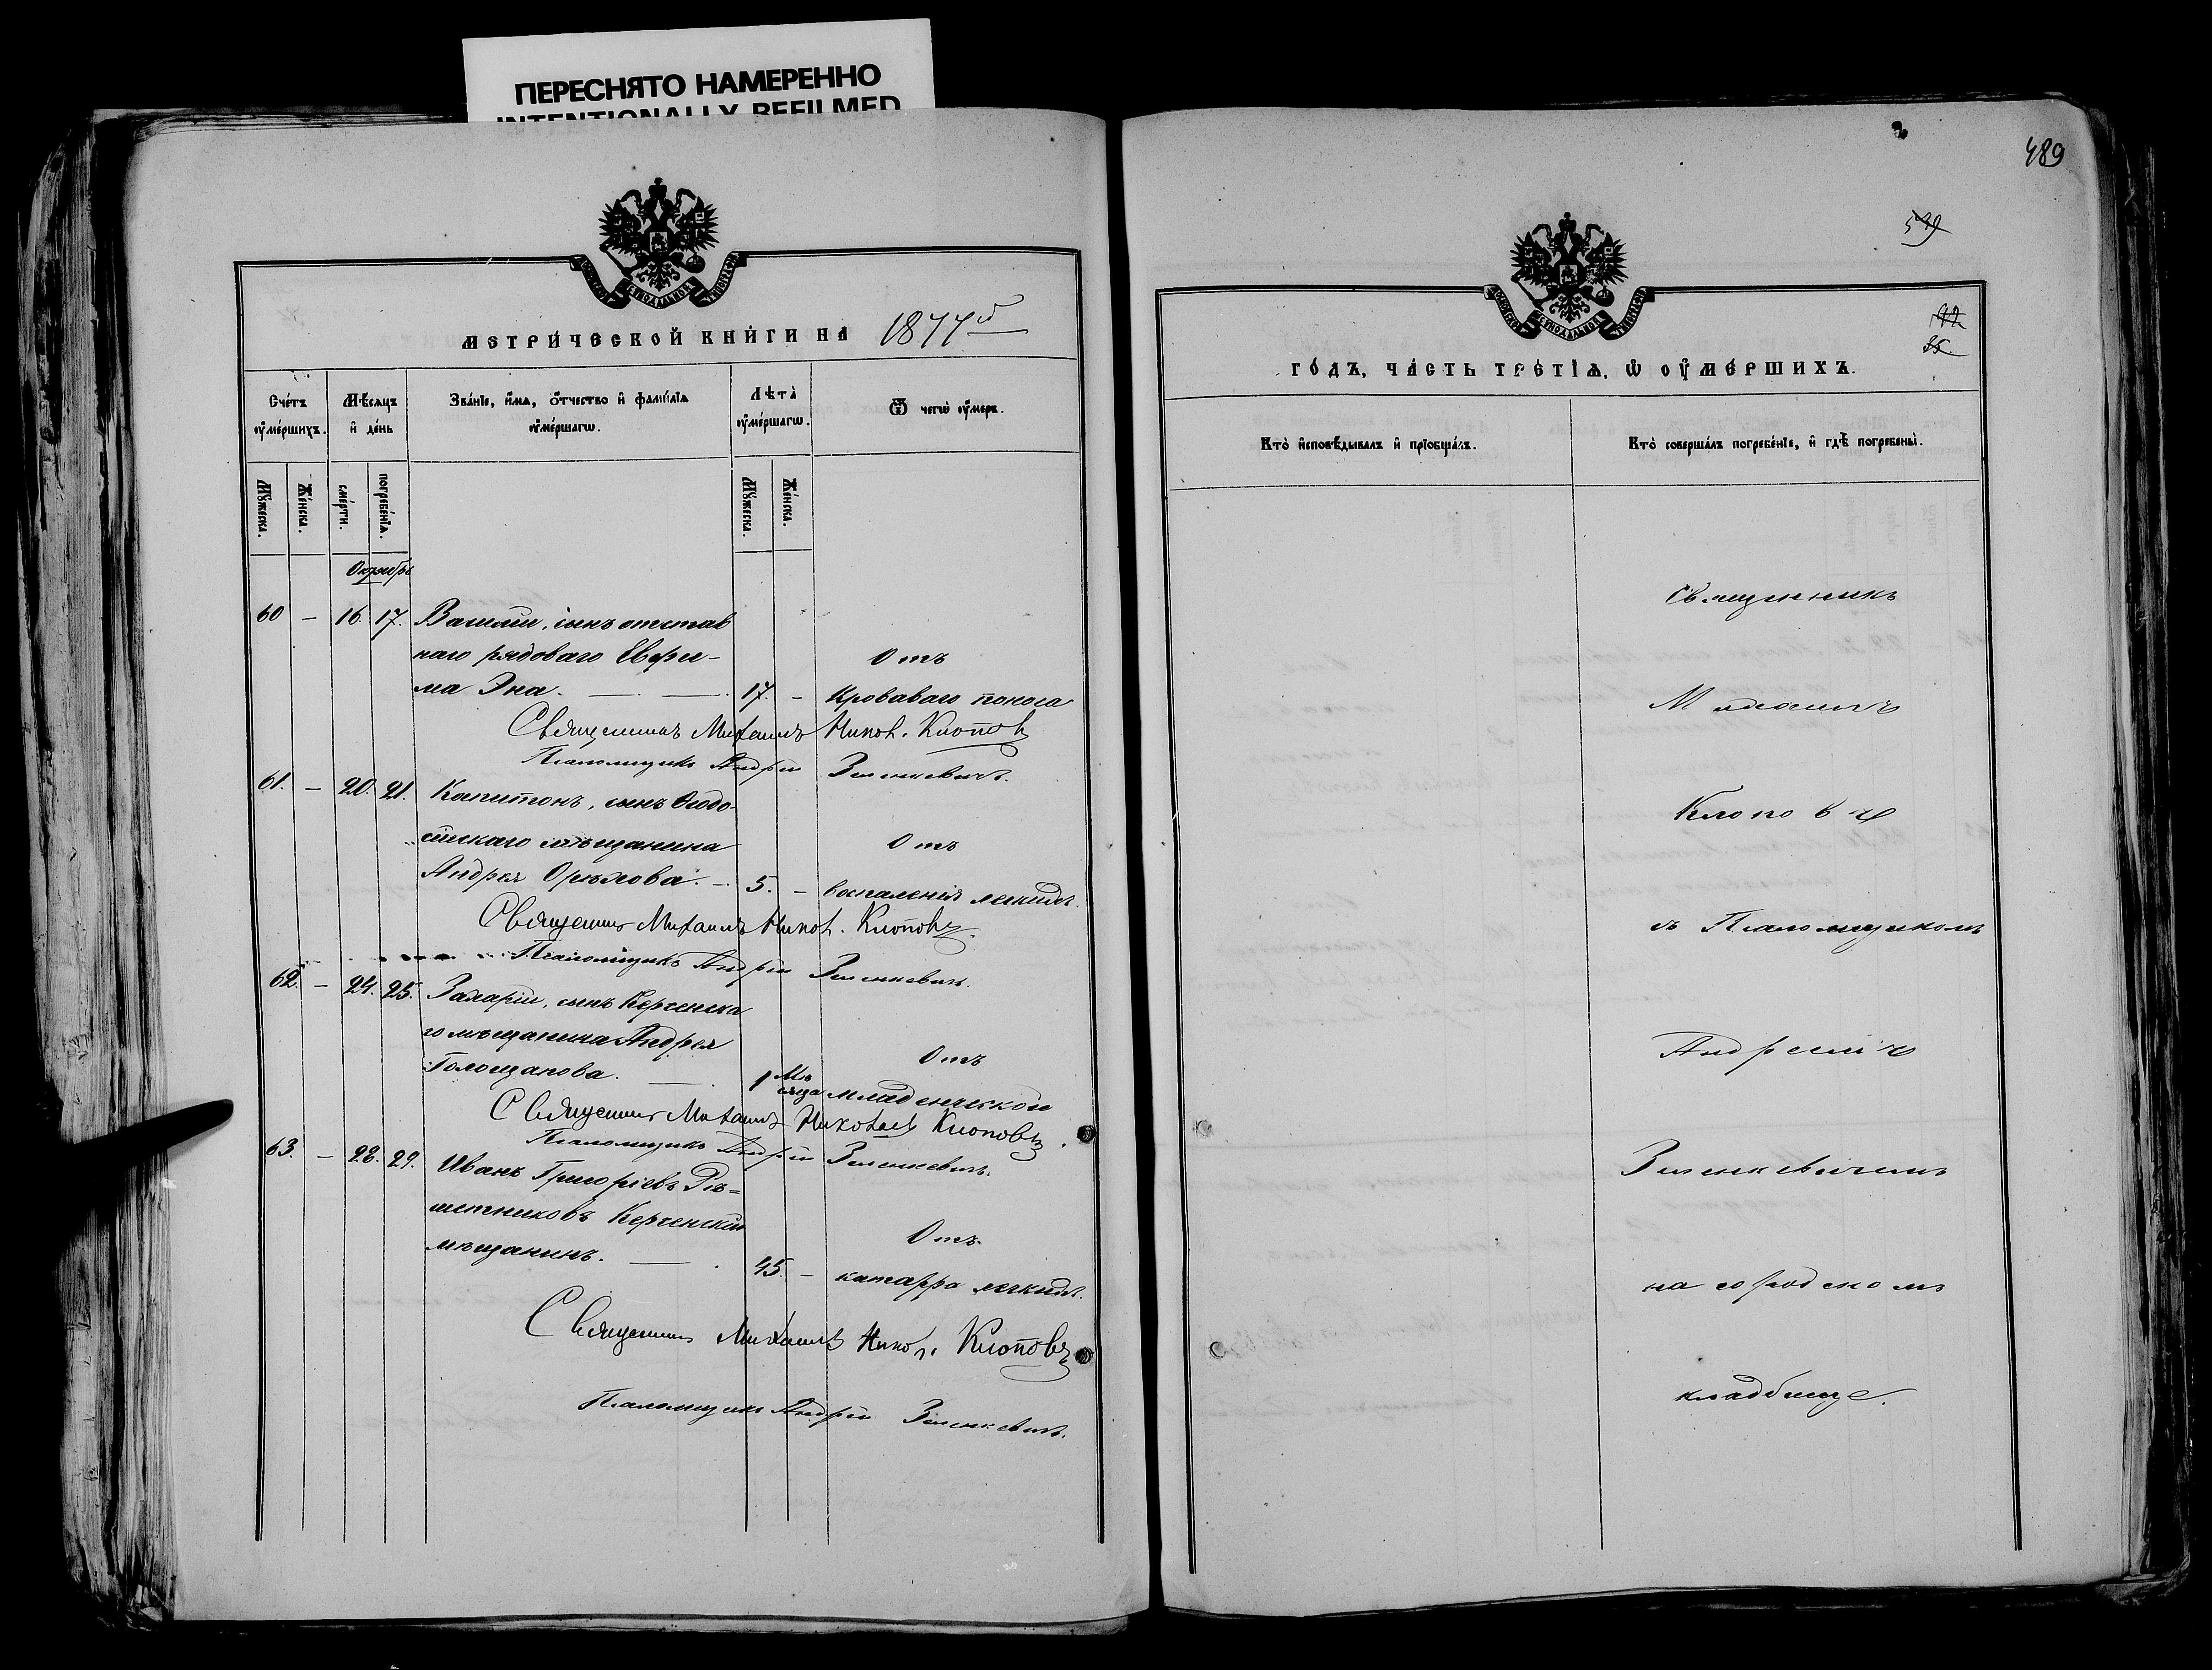 ПЕРЕСНЯТО НАМЕРЕННО
INTENTIONALLY REFILMED
МЕТРИЧЕСКОЙ КНИГИ НА 1877й
Счетъ умершихъ.
Мѣсяцъ и день
Званіе, имя, отчество и фамилія умершагω.
Лѣта умершагω.
Ѿ чегω умеръ.
Мужеска.
Женска.
смерти.
погребенія.
Мужеска.
Женска.
Октябрь
60 – 16. 17. Василій, сынъ отстав
наго рядоваго Ефи- Отъ
ма Эна. — — 17. – Кроваваго поноса
Священникъ Михаилъ Никол. Клопов
Псаломщикъ Андрей Зеленкевичъ.
61. – 20. 21. Капитонъ, сынъ Ѳеодо-
сійскаго мѣщанина Отъ
Андрея Орѣхова. – 5. – воспаленія легкихъ.
Священникъ Михаилъ Никол. Клоповъ
Псаломщикъ Андрей Зеленкевичъ.
62. – 24. 25. Захарій, сынъ Керченска
го мѣщанина Андрея Отъ
Голощапова. — 1 Мѣсяца младенческой
Священникъ Михаилъ Николаев Клоповъ
Псаломщикъ Андрей Зеленкевичъ.
63. – 28. 29. Иванъ Григорьевъ Рѣ=
шетниковъ Керченскій Отъ
мѣщанинъ. — 45. – катарра легкихъ.
Священникъ Михаилъ Никол. Клоповъ
Псаломщикъ Андрей Зеленкевичъ.
489
ГОДЪ, ЧАСТЬ ТРЕТІЯ, Ѡ УМЕРШИХЪ.
Кто исповѣдывалъ и пріобщалъ.
Кто совершалъ погребеніе, и гдѣ погребены.
Священникъ
Михаилъ
Клоповъ
съ Псаломщикомъ
Андреемъ
Зеленкевичемъ
на городскомъ
кладбище.